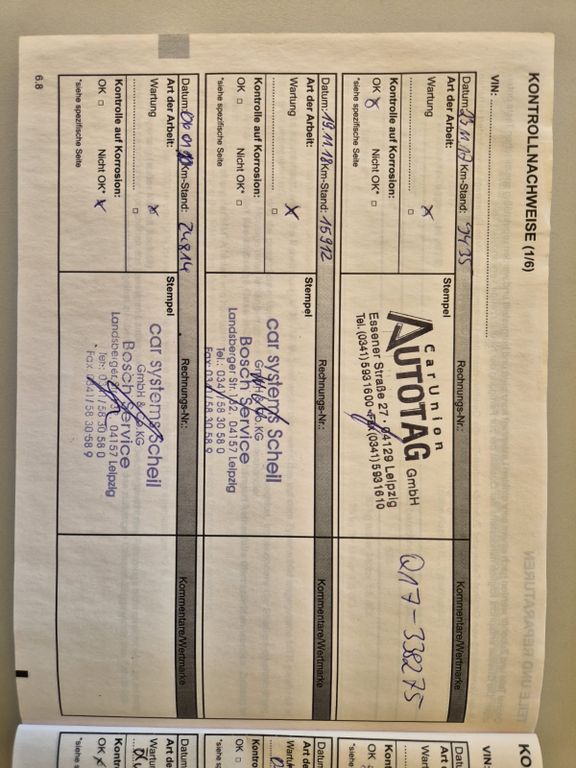 KONTROLLNACHWEISE (1/6)
VIN:
Datum: 23.11.17 Km-Stand: 9435
Rechnungs-Nr.:
Kommentare/Wertmarke
Art der Arbeit:
Stempel
Wartung
Kontrolle auf Korrosion:
OK
Nicht OK*
*siehe spezifische Seite
CarUnion
AUTOTAG GmbH
Essener Straße 27 · 04129 Leipzig
Tel. (0341) 5931600 · Fax (0341) 5931610
Q17-338275
Datum: 19.11.18 Km-Stand: 15912
Rechnungs-Nr.:
Kommentare/Wertmarke
Art der Arbeit:
Stempel
Wartung
Kontrolle auf Korrosion:
OK
Nicht OK*
*siehe spezifische Seite
car systems Scheil
GmbH & Co. KG
Bosch Service
Landsberger Str. 04157 Leipzig
Tel.: 0341/ 58 30 58 0
Fax 0341/ 58 30 58 9
Datum: Km-Stand: 24814
Rechnungs-Nr.:
Kommentare/Wertmarke
Art der Arbeit:
Stempel
Wartung
Kontrolle auf Korrosion:
OK
Nicht OK*
*siehe spezifische Seite
car systems Scheil
GmbH & Co. KG
Bosch Service
Landsberger 04157 Leipzig
Tel.: 0341/ 58 30 58 0
Fax 0341/ 58 30 58 9
6.8
KO
VIN:
Datu
Art de
Wartu
Kontro
OK
*siehe s
Datum
Art de
Wartu
Kontro
OK
*siehe s
Datum
Art de
Wartu
Kontr
OK
*siehe s